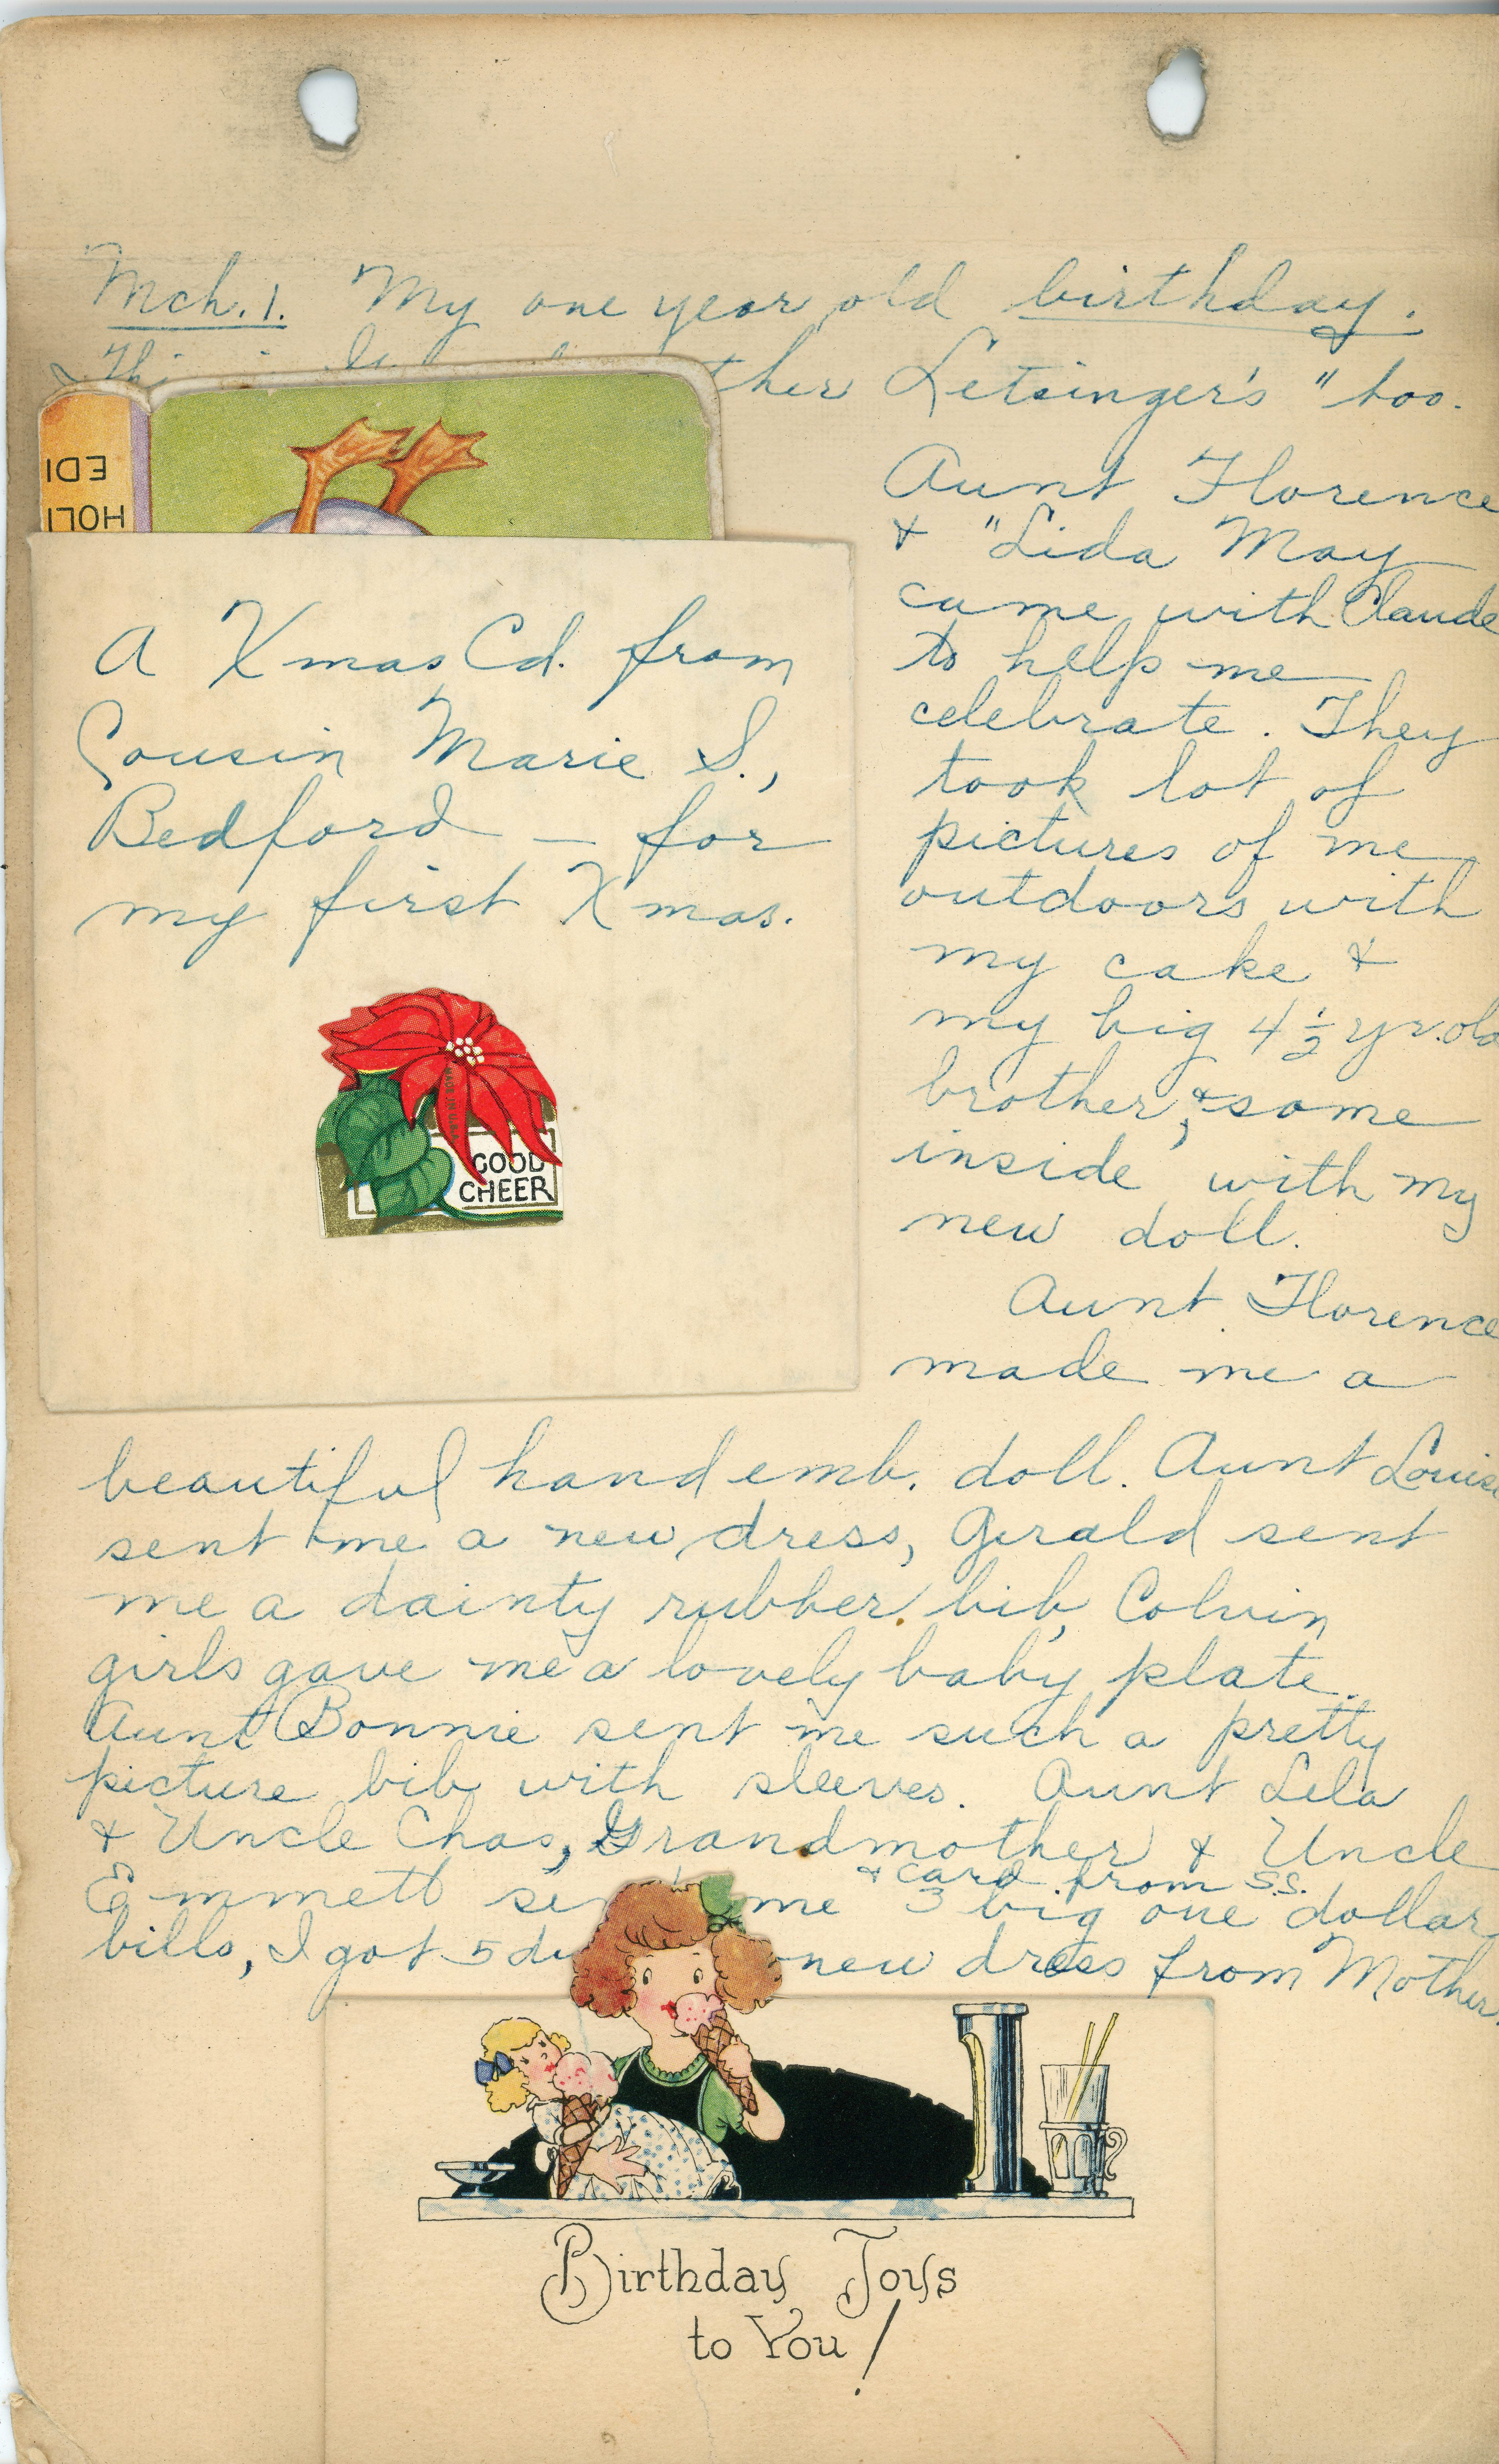 Mch. 1. My one year old birthday.
ther Letsinger's " too.
EDI
HOLI
Aunt Florence
& "Lida May
came with Claude
to help me
celebrate. They
took lot of
pictures of me
outdoors with
my cake &
my big 4 1/2 yr. old
brother, & some
inside with my
new doll.
Aunt Florence
made me a
A Xmas Cd. from
Cousin Marie S.,
Bedford — for
my first Xmas.
GOOD
CHEER
beautiful hand emb. doll. Aunt Louise
sent me a new dress, Gerald sent
me a dainty rubber bib, Colvin
girls gave me a lovely baby plate.
Aunt Bonnie sent me such a pretty
picture bib with sleeves. Aunt Lela
& Uncle Chas, Grandmother & Uncle
& card from S.S.
Emmett me 3 big one dollar
bills, I got 5 new dress from Mother.
Birthday Joys
to You!